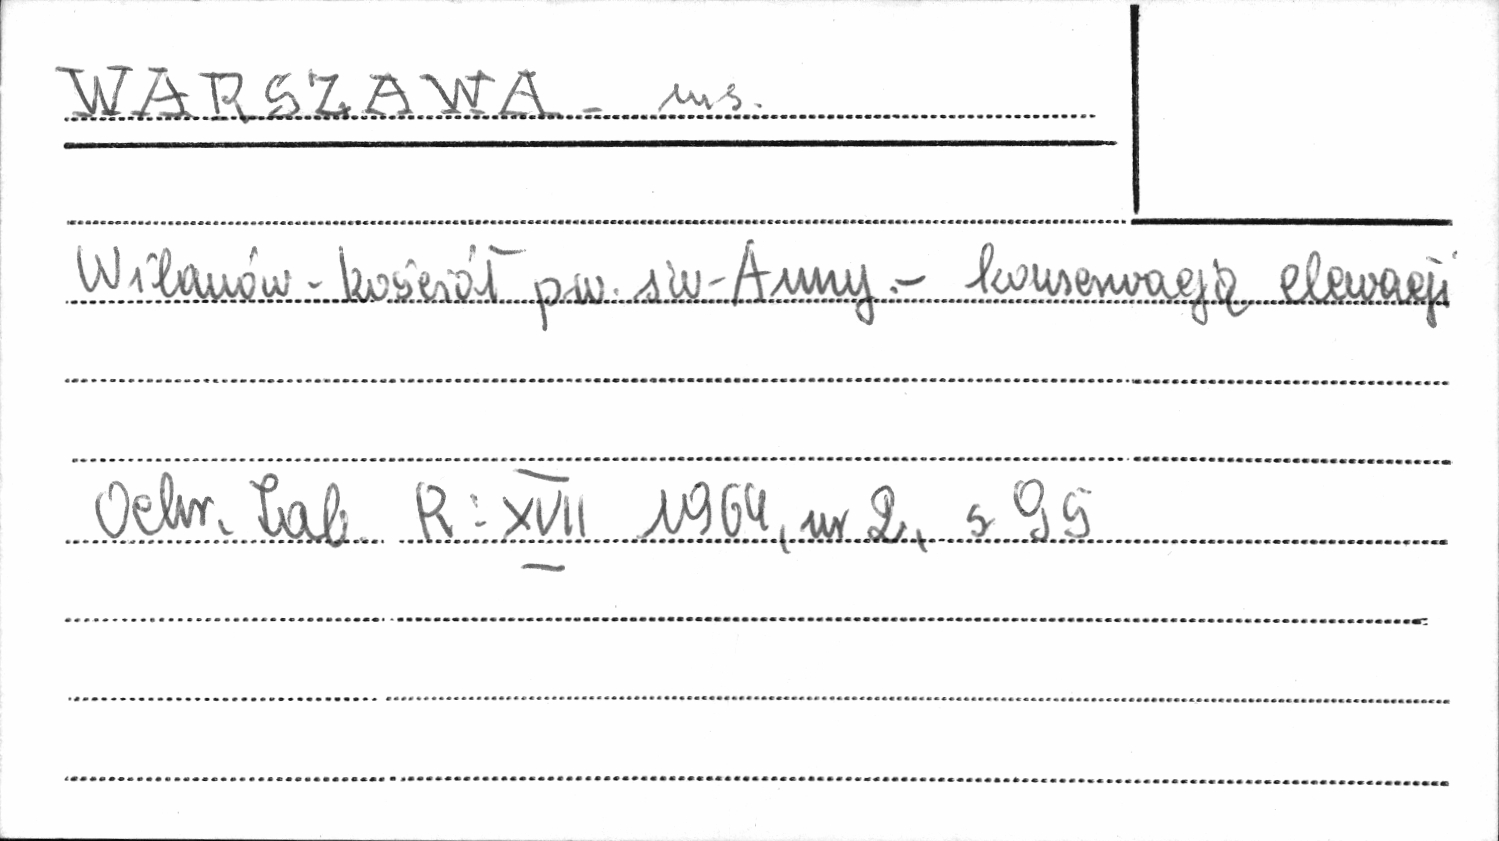 WARSZAWA - ms.
Wilanów - kościół pw. św. Anny - konserwacja elewacji
Ochr. Zab. R: XVII 1964, nr 2, s 95